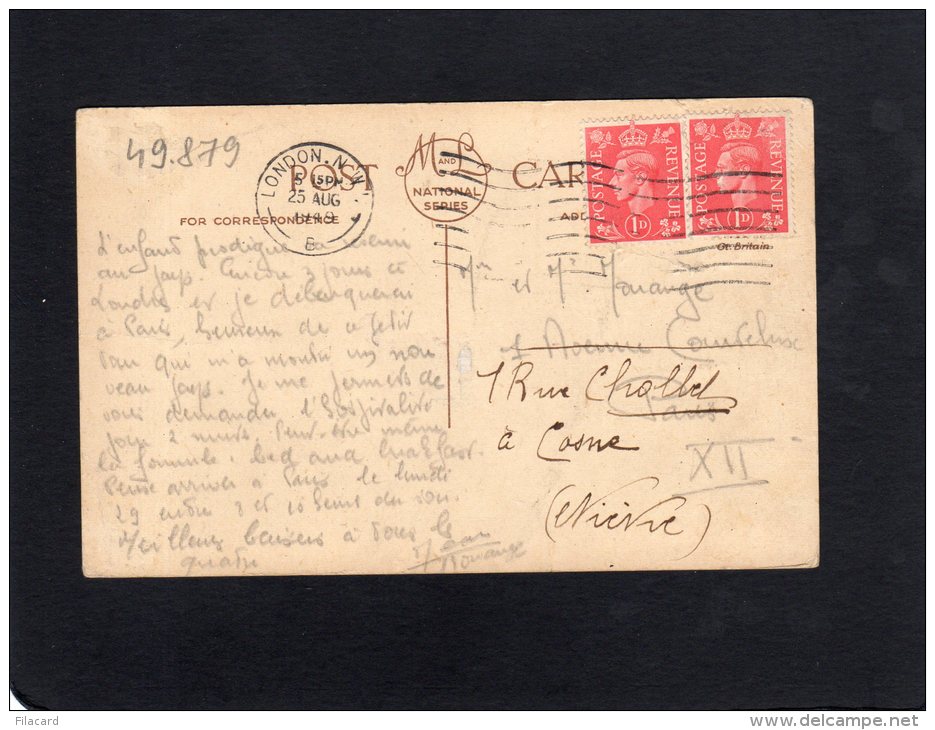 49.879
POST CARD
M and L
NATIONAL
SERIES
LONDON. N.W.
5 15PM
25 AUG
1949
B
FOR CORRESPONDENCE
ADD
POSTAGE REVENUE
1D
POSTAGE REVENUE
1D
Gt. Britain
L'enfant prodigue revient
au pays. Encore 3 jours à
Londres et je débarquerai
à Paris, heureux de ce petit
tour qui m'a montré un nou
veau pays. Je me permets de
vous demander l'hospitalité
pour 2 nuits. Peut-être même
la formule: bed and breakfast.
Pense arriver à Paris le lundi
29 entre 8 et 10 heures du soir.
Meilleurs baisers à vous
quatre
Jean
Mouange
Mr et Me Mouange
1 Avenue
Paris
XII
1 Rue Challet
à Cosne
(Nièvre)
Filacard
www.delcampe.net